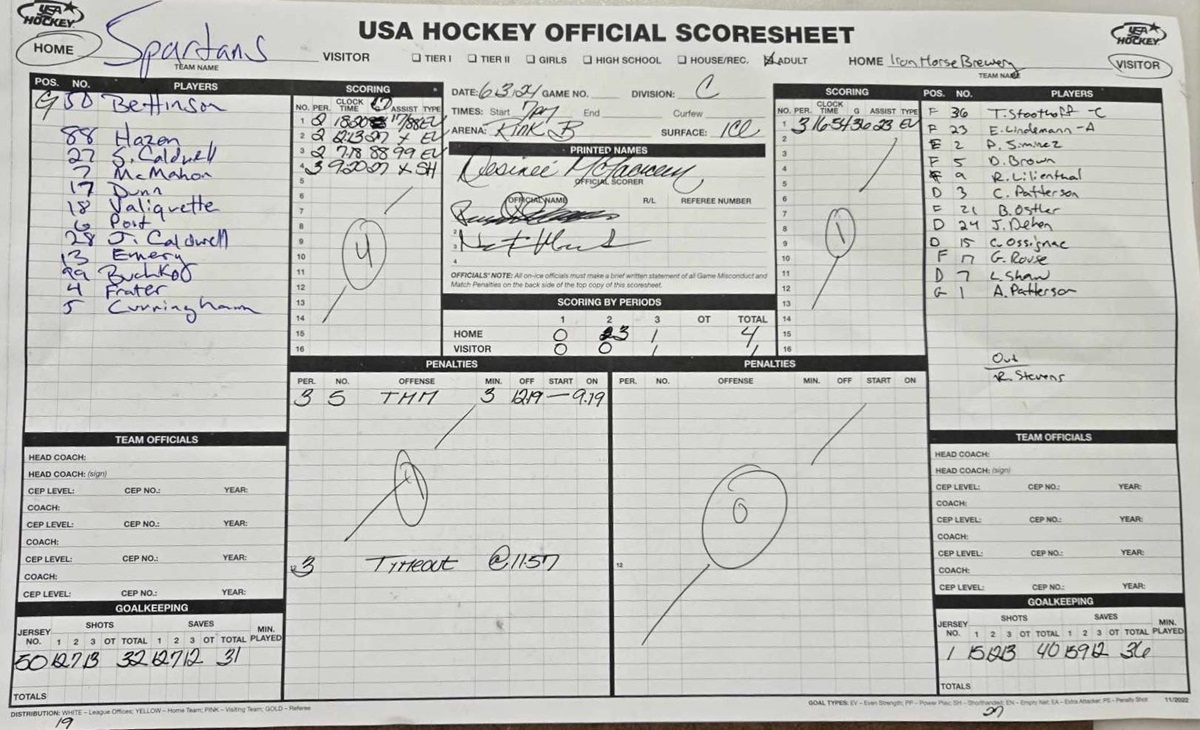 USA HOCKEY
USA HOCKEY OFFICIAL SCORESHEET
USA HOCKEY
HOME Spartans VISITOR
TEAM NAME
☐ TIER I ☐ TIER II ☐ GIRLS ☐ HIGH SCHOOL ☐ HOUSE/REC. ☒ ADULT
HOME Iron Horse Brewery VISITOR
TEAM NAME
POS. NO. PLAYERS
G 50 Bettinson
88 Hazen
27 S. Caldwell
7 McMahon
17 Dunn
18 Valiquette
6 Port
28 J. Caldwell
13 Emery
99 Buchkof
4 Frater
5 Cunningham
SCORING
NO. PER. CLOCK TIME G ASSIST TYPE
1 2 18:20 17/88 EV
2 2 12:13 27 x EV
3 2 7:18 88 99 EV
4 3 9:20 27 x SH
5
6
7
8
9
10
11
12
13
14
15
16
4
DATE: 6.3.24 GAME NO. DIVISION: C
TIMES: Start 7pm End Curfew
ARENA: Rink B SURFACE: ICE
PRINTED NAMES
OFFICIAL SCORER
OFFICIAL NAME R/L REFEREE NUMBER
2
3
4
OFFICIALS' NOTE: All on-ice officials must make a brief written statement of all Game Misconduct and
Match Penalties on the back side of the top copy of this scoresheet.
SCORING BY PERIODS
1 2 3 OT TOTAL
HOME 0 3 1 4
VISITOR 0 0 1 1
SCORING
NO. PER. CLOCK TIME G ASSIST TYPE
1 3 16:54 36 23 EV
2
3
4
5
6
7
8
9
10
11
12
13
14
15
16
1
POS. NO. PLAYERS
F 36 T. Stoothoff -C
F 23 E. Lindemann -A
F 2 P. Siminez
F 5 D. Brown
F 9 R. Lilienthal
D 3 C. Patterson
F 21 B. Ostler
D 24 J. Dehen
D 15 C. Ossignac
F 17 G. Rouse
D 7 L. Shaw
G 1 A. Patterson
Out
R. Stevens
PENALTIES
PER. NO. OFFENSE MIN. OFF START ON
3 5 TMM 3 12:19 — 9:19
1
12 3 TIMEOUT @ 11:57
PENALTIES
PER. NO. OFFENSE MIN. OFF START ON
0
12
TEAM OFFICIALS
HEAD COACH:
HEAD COACH: (sign)
CEP LEVEL: CEP NO.: YEAR:
COACH:
CEP LEVEL: CEP NO.: YEAR:
COACH:
CEP LEVEL: CEP NO.: YEAR:
COACH:
CEP LEVEL: CEP NO.: YEAR:
GOALKEEPING
JERSEY NO. SHOTS 1 2 3 OT TOTAL SAVES 1 2 3 OT TOTAL MIN. PLAYED
50 12 7 13 32 12 7 12 31
TOTALS
TEAM OFFICIALS
HEAD COACH:
HEAD COACH: (sign)
CEP LEVEL: CEP NO.: YEAR:
COACH:
CEP LEVEL: CEP NO.: YEAR:
COACH:
CEP LEVEL: CEP NO.: YEAR:
COACH:
CEP LEVEL: CEP NO.: YEAR:
GOALKEEPING
JERSEY NO. SHOTS 1 2 3 OT TOTAL SAVES 1 2 3 OT TOTAL MIN. PLAYED
1 15 12 13 40 15 9 12 36
TOTALS
DISTRIBUTION: WHITE – League Offices; YELLOW – Home Team; PINK – Visiting Team; GOLD – Referee
GOAL TYPES: EV – Even Strength; PP – Power Play; SH – Shorthanded; EN – Empty Net; EA – Extra Attacker; PS – Penalty Shot 11/2022
19
27